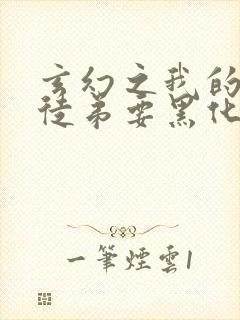 玄幻之我的
徒弟要黑化
一筆煙雲1